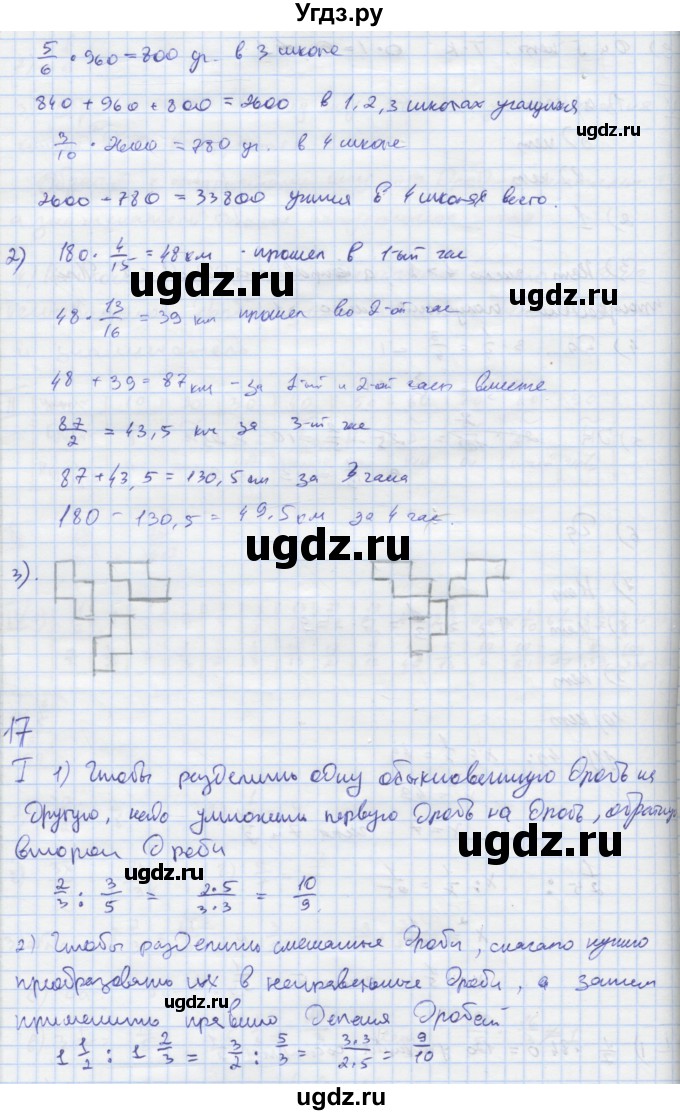 Угдз.ру
5/6 · 960 = 800 уг. в 3 школе
840 + 960 + 800 = 2600 в 1, 2, 3 школах учащихся
ugdz.ru
3/10 · 2600 = 780 уг. в 4 школе
2600 + 780 = 33800 учился в 4 школах всего.
ugdz.ru
2) 180 · 4/15 = 48 км - прошел в 1-ый час
48 · 13/16 = 39 км прошел во 2-ой час
ugdz.ru
48 + 39 = 87 км - за 1-ый и 2-ой часы вместе
87/2 = 43,5 км за 3-ий час
ugdz.ru
87 + 43,5 = 130,5 км за 3 часа
180 - 130,5 = 49,5 км за 4 час.
ugdz.ru
3).
ugdz.ru
17
I 1) Чтобы разделить одну обыкновенную дробь на
другую, надо умножить первую дробь на дробь,
ugdz.ru
второй дроби
2/3 : 3/5 = 2·5/3·3 = 10/9
ugdz.ru
2) Чтобы разделить смешанные дроби, сначало нужно
преобразовать их в неправильные дроби, а затем
ugdz.ru
применить правило деления дробей
1 1/2 : 1 2/3 = 3/2 : 5/3 = 3·3/2·5 = 9/10
ugdz.ru